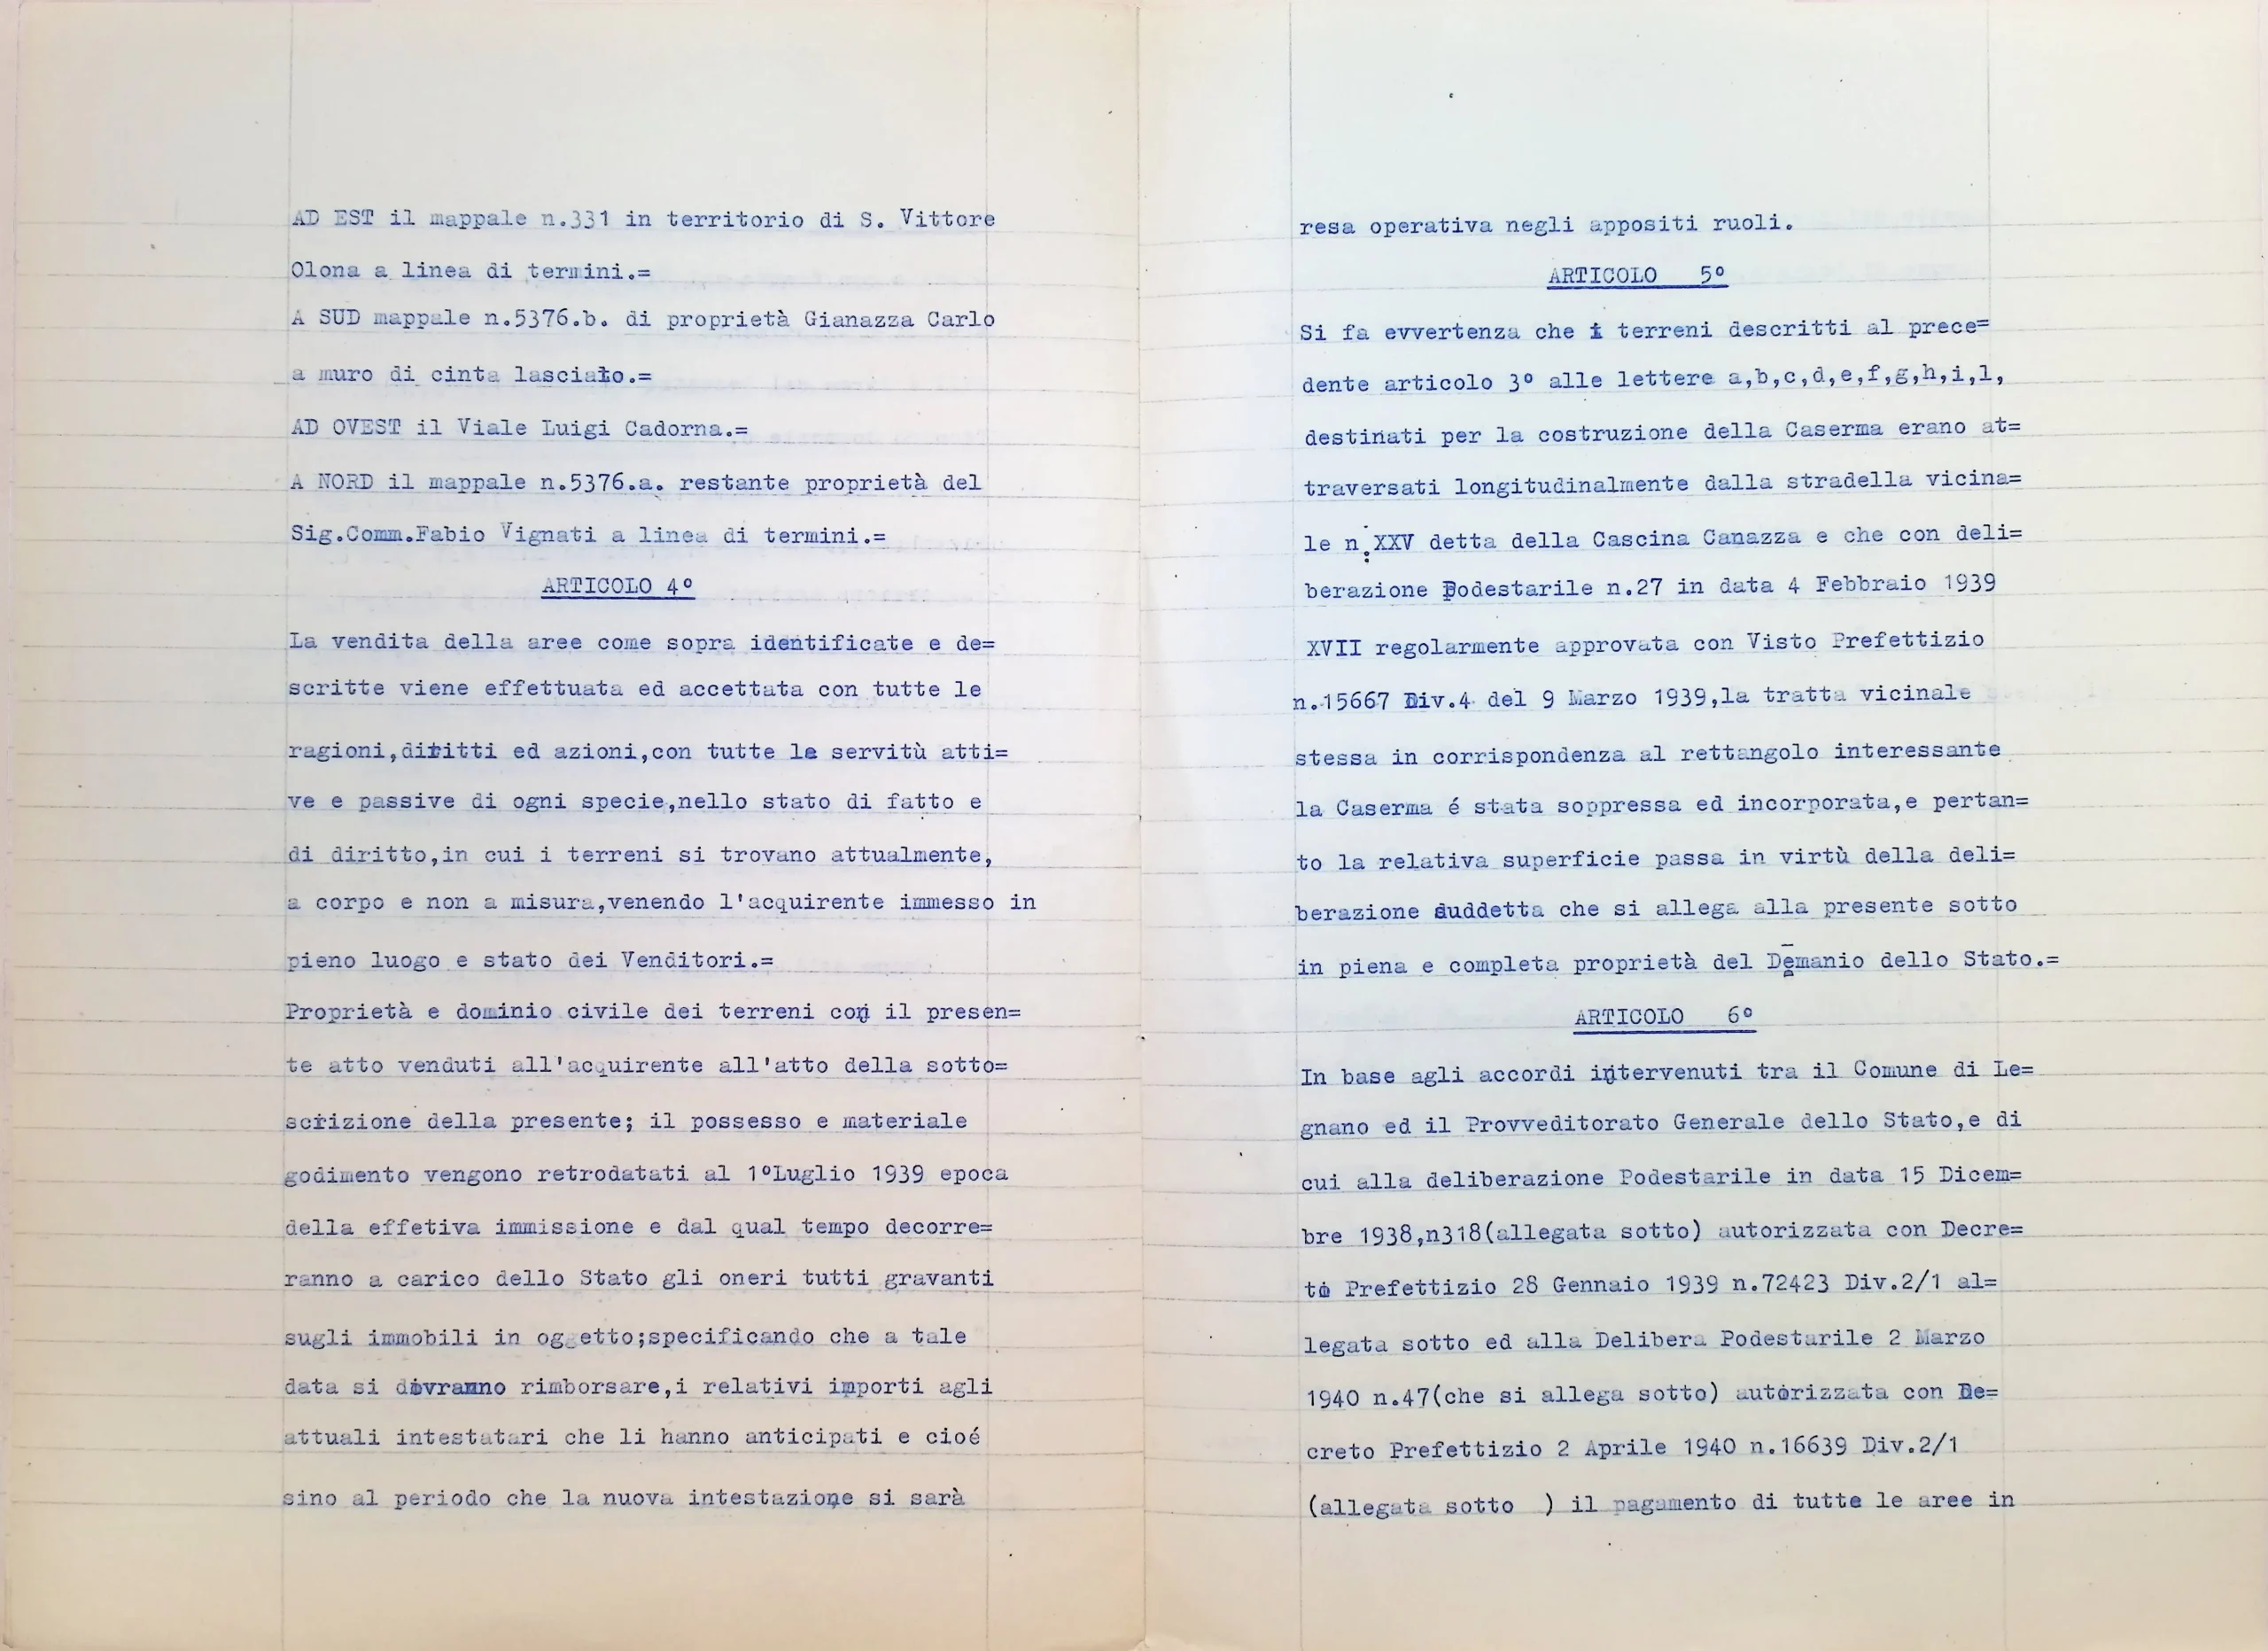 AD EST il mappale n.331 in territorio di S. Vittore
Olona a linea di termini.=
A SUD mappale n.5376.b. di proprietà Gianazza Carlo
a muro di cinta lasciato.=
AD OVEST il Viale Luigi Cadorna.=
A NORD il mappale n.5376.a. restante proprietà del
Sig.Comm.Fabio Vignati a linea di termini.=
ARTICOLO 4°
La vendita della aree come sopra identificate e de=
scritte viene effettuata ed accettata con tutte le
ragioni,diritti ed azioni,con tutte le servitù atti=
ve e passive di ogni specie,nello stato di fatto e
di diritto,in cui i terreni si trovano attualmente,
a corpo e non a misura,venendo l'acquirente immesso in
pieno luogo e stato dei Venditori.=
Proprietà e dominio civile dei terreni con il presen=
te atto venduti all'acquirente all'atto della sotto=
scrizione della presente; il possesso e materiale
godimento vengono retrodatati al 1°Luglio 1939 epoca
della effetiva immissione e dal qual tempo decorre=
ranno a carico dello Stato gli oneri tutti gravanti
sugli immobili in oggetto;specificando che a tale
data si dovranno rimborsare,i relativi importi agli
attuali intestatari che li hanno anticipati e cioé
sino al periodo che la nuova intestazione si sarà
resa operativa negli appositi ruoli.
ARTICOLO 5°
Si fa evvertenza che i terreni descritti al prece=
dente articolo 3° alle lettere a,b,c,d,e,f,g,h,i,l,
destinati per la costruzione della Caserma erano at=
traversati longitudinalmente dalla stradella vicina=
le n.XXV detta della Cascina Canazza e che con deli=
berazione Podestarile n.27 in data 4 Febbraio 1939
XVII regolarmente approvata con Visto Prefettizio
n.15667 Div.4 del 9 Marzo 1939,la tratta vicinale
stessa in corrispondenza al rettangolo interessante
la Caserma é stata soppressa ed incorporata,e pertan=
to la relativa superficie passa in virtù della deli=
berazione suddetta che si allega alla presente sotto
in piena e completa proprietà del Demanio dello Stato.=
ARTICOLO 6°
In base agli accordi intervenuti tra il Comune di Le=
gnano ed il Provveditorato Generale dello Stato,e di
cui alla deliberazione Podestarile in data 15 Dicem=
bre 1938,n318(allegata sotto) autorizzata con Decre=
to Prefettizio 28 Gennaio 1939 n.72423 Div.2/1 al=
legata sotto ed alla Delibera Podestarile 2 Marzo
1940 n.47(che si allega sotto) autorizzata con De=
creto Prefettizio 2 Aprile 1940 n.16639 Div.2/1
(allegata sotto ) il pagamento di tutte le aree in